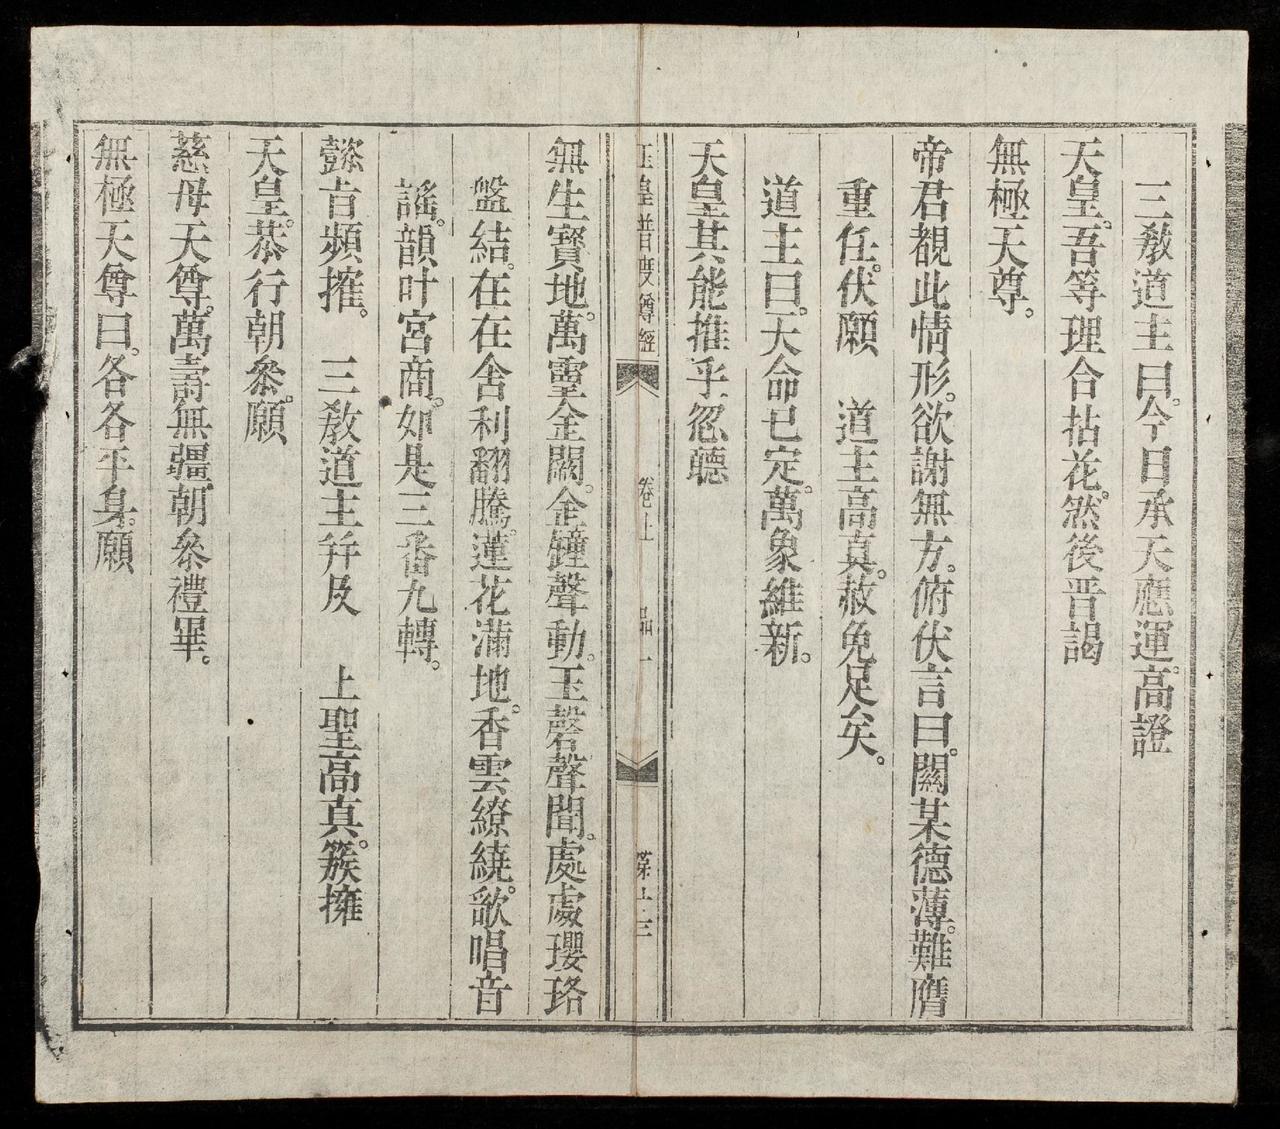 三敎道主曰。今日承天應運。高證
天皇。吾等理合拈花。然後晋謁
無極天尊。
帝君覩此情形。欲謝無方。俯伏言曰。關某德薄。難膺
重任。伏願　道主高真。赦免足矣。
道主曰。天命已定。萬象維新。
天皇其能推乎。忽聽
玉皇普度尊經　卷上　品一　葉十三
無生寳地。萬靈金闕。金鐘聲動。玉磬聲聞。處處瓔珞
盤結。在在舍利翻騰。蓮花滿地。香雲繚繞。歌唱音
謠。韻叶宮商。如是三番九轉。
懿旨頻搉。　三敎道主幷及　上聖高真。簇擁
天皇。恭行朝叅。願
慈母天尊。萬壽無疆。朝叅禮畢。
無極天尊曰。各各平身。願